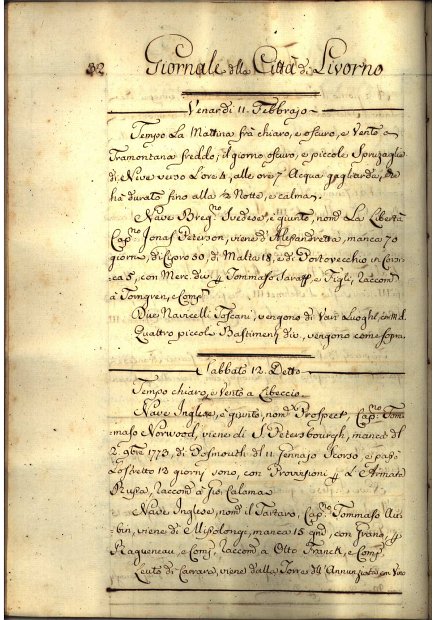 32 Giornale della Città di Livorno
Venardi 11. Febbrajo
Tempo La Mattina frà chiaro, e oscuro, e Vento a
Tramontana freddo; il giorno oscuro, e piccole Spruzaglie
di Neve verso L'ore 4, alle ore 7 Acqua gagliarda, che
ha durato fino alla ½ Notte, e calma.
Nave Svedese, e giunto, nom.ta La Libertà
Cap.no Jonas Peterson, viene d'Alesandretta, manca 70
giorni, di Cipro 50, di Malta 18, e di Portovecchio in Corsi-
ca 5, con Merc. div. Tommaso e Figli, Raccom.
a Törngren, e Comp.
Due Navicelli Toscani, vengono di Varj Luoghi, con M. d.
Quattro piccoli Bastimenti div. vengono come sopra.
Sabbato 12. Detto
Tempo chiaro, e Vento a Libeccio.
Nave Inglese, e giunto, nom. Prospect, Cap.no Tom-
maso Norwood, viene di S. Petersbourgh, manca dal
2. 9bre 1773, di Posmouth dal 11. Gennajo Scorso e passò
Lo Stretto 13 giorni sono, con Provisioni L'Armata
Russa, Raccom. a Gio. Calamai
Nave Inglese, nom. il Tartaro, Cap.no Tommaso
viene di Missolongi, manca 15 con Grano
Ragueneau, e Comp. Raccom. a Otto Franck, e Comp.
Leuto di Carrara, viene dalla Torre d'Annunziata con Vino